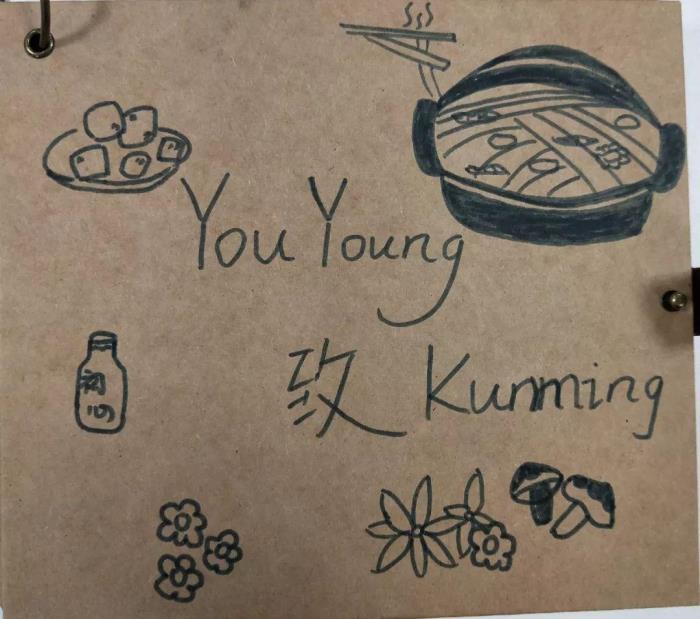 You Young
致 Kunming
初
心